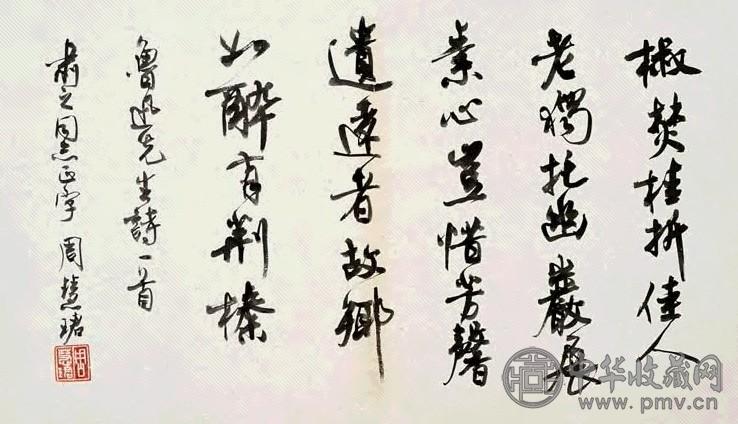 椒焚桂折佳人
老獨托幽巖展
素心豈惜芳馨
遺遠者故鄉
如醉有荆榛
魯迅先生詩一首
肅之同志正字 周慧珺
中华收藏网
www.pmv.cn